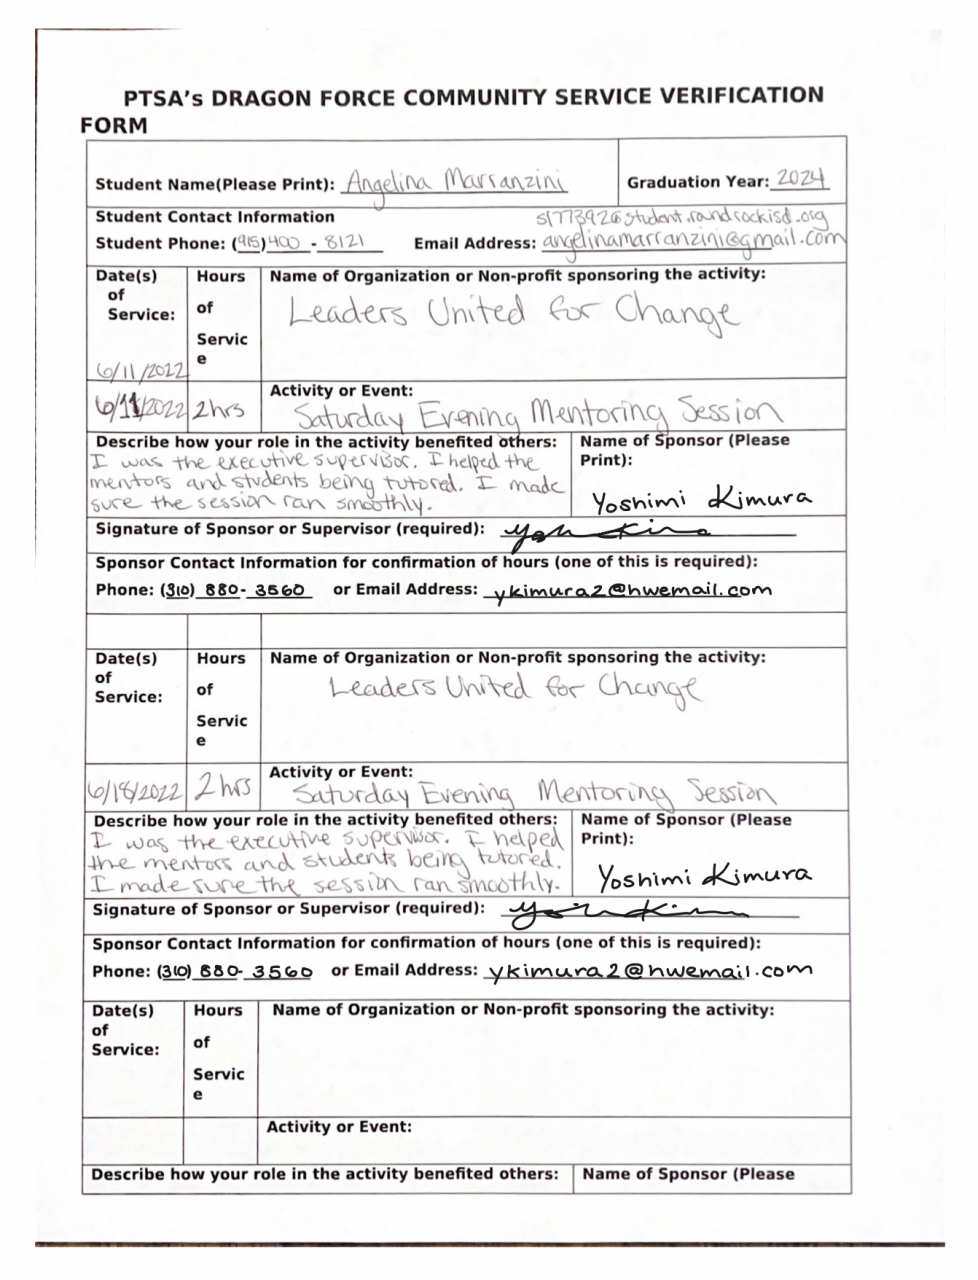 PTSA's DRAGON FORCE COMMUNITY SERVICE VERIFICATION
FORM
Student Name(Please Print): Angelina Marranzini Graduation Year: 2024
Student Contact Information
Student Phone: (915)400 - 8121 Email Address: angelinamarranzini@gmail.com
Date(s) of Service: Hours of Service Name of Organization or Non-profit sponsoring the activity:
Leaders United for Change
6/11/2022
6/11/2022 2hrs Activity or Event:
Saturday Evening Mentoring Session
Describe how your role in the activity benefited others: Name of Sponsor (Please Print):
I was the executive supervisor. I helped the
mentors and students being tutored. I made
sure the session ran smoothly.
Yoshimi Kimura
Signature of Sponsor or Supervisor (required):
Sponsor Contact Information for confirmation of hours (one of this is required):
Phone: (310) 880- 3560 or Email Address: ykimura2@hwemail.com
Date(s) of Service: Hours of Service Name of Organization or Non-profit sponsoring the activity:
Leaders United for Change
6/18/2022 2 hrs Activity or Event:
Saturday Evening Mentoring Session
Describe how your role in the activity benefited others: Name of Sponsor (Please Print):
I was the executive supervisor. I helped
the mentors and students being tutored.
I made sure the session ran smoothly.
Yoshimi Kimura
Signature of Sponsor or Supervisor (required):
Sponsor Contact Information for confirmation of hours (one of this is required):
Phone: (310) 880- 3560 or Email Address: ykimura2@hwemail.com
Date(s) of Service: Hours of Service Name of Organization or Non-profit sponsoring the activity:
Activity or Event:
Describe how your role in the activity benefited others: Name of Sponsor (Please